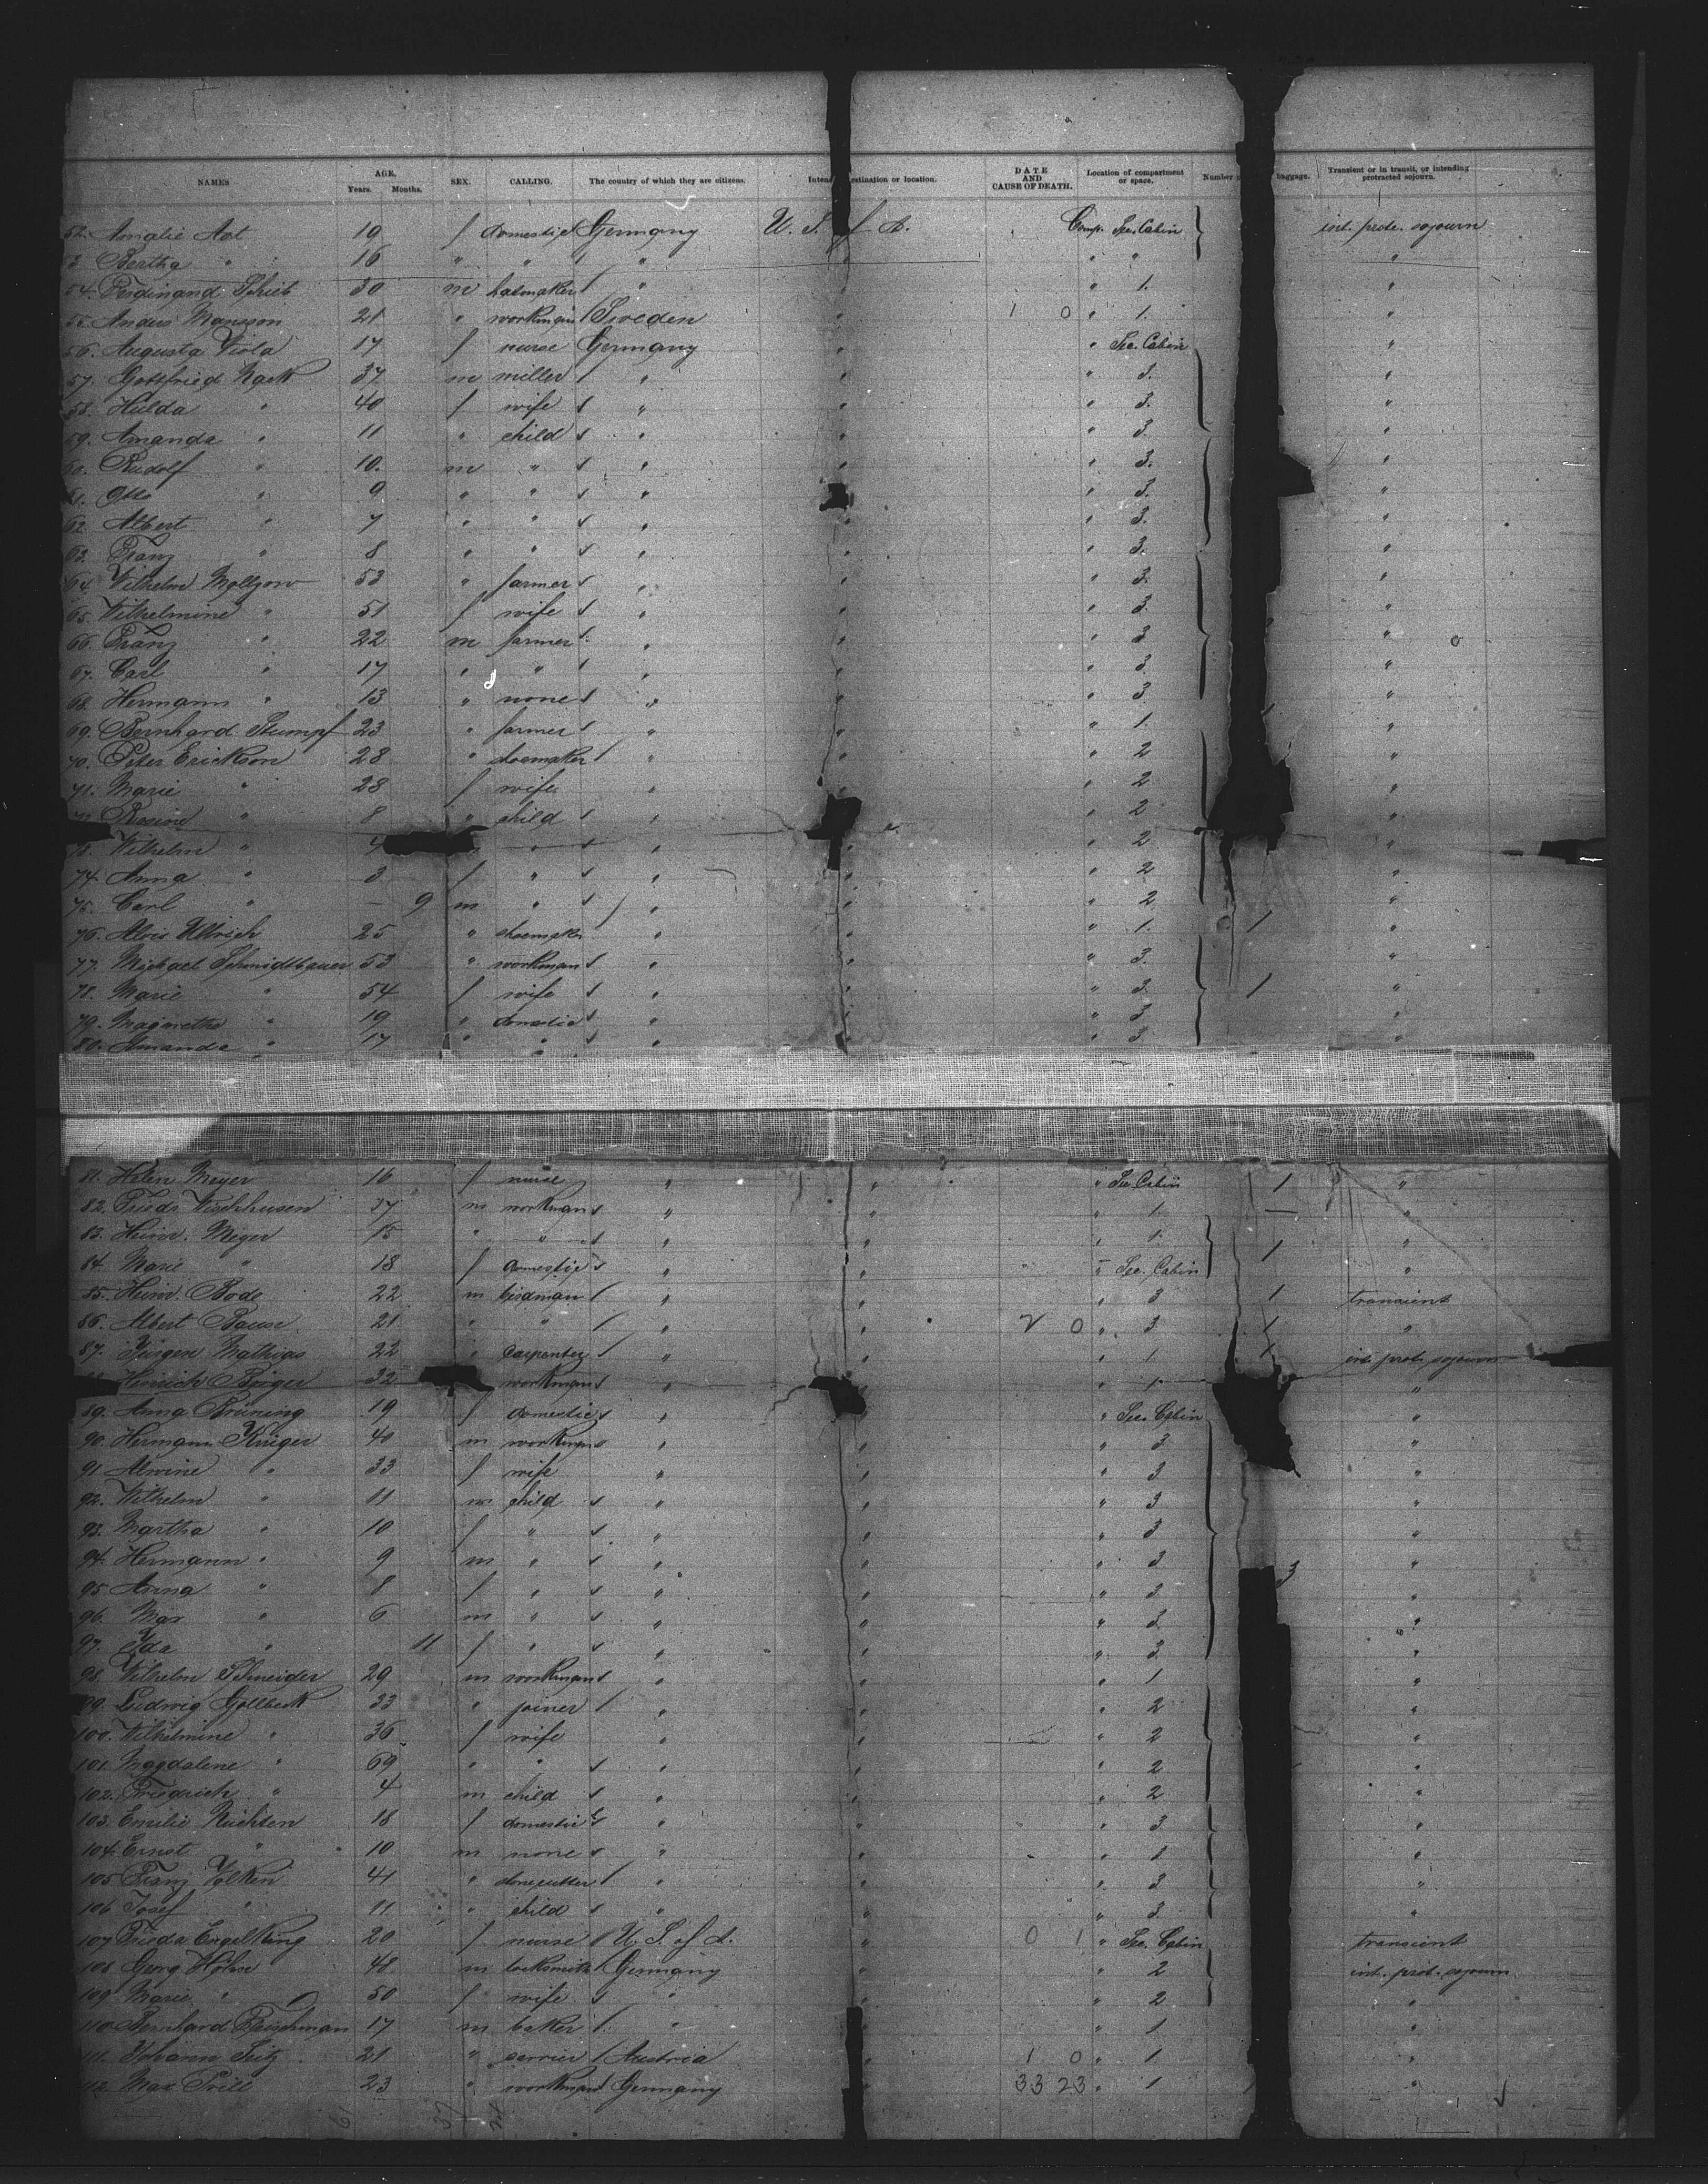 NAMES AGE. Years. Months. SEX. CALLING. The country of which they are citizens. Intend estination or location. DATE AND CAUSE OF DEATH. Location of compartment or space. Number baggage. Transient or in transit, or intending protracted sojourn.
52. Amalie Ast 19 f domestic Germany U. S. of A. Comp. Sec. Cabin int. protr. sojourn
3 Bertha " 16 " " " " " "
54. Ferdinand 30 m hatmaker " " 1. "
55. Anders Mansson 21 " workman Sweden " 1 0 " 1. "
56. Augusta Viola 17 f nurse Germany " " Sec. Cabin "
57. Gottfried Nack 37 m miller " " " 3. "
58. Hulda " 40 f wife " " " 3. "
59. Amanda " 11 " child " " " 3. "
60. Rudolf " 10. m " " " " 3. "
61. Otto " 9 " " " " 3. "
62. Albert " 7 " " " " " 3. "
63. Franz " 8 " " " " " 3. "
64. Wilhelm Mollzow 53 " farmer " " " 3. "
65. Wilhelmine " 51 f wife " " " 3. "
66. Franz " 22 m farmer " " " 3 " 0
67. Carl " 17 " " " " " 3. "
68. Hermann " 13 " none " " " 3 "
69. Bernhard Stumpf 23 " farmer " " " 1. "
70. Peter Erickson 28 " shoemaker " " " 2 "
71. Marie " 28 f wife " " " 2 "
72. " 8 " child " " 2 "
73. Wilhelm " 4 " " " " 2 "
74. Anna " 3 f " " " " 2 "
75. Carl " — 9 m " " " " 2 "
76. Alois Ullrich 25 " shoemaker " " " 1. 1 "
77. Michael Schmidtbauer 53 " workman " " " 3. "
78. Marie " 54 f wife " " " 3. 1 "
79. Magretha " 19 " domestic " " " 3 "
80. Amanda " 17 " " " " 3. "
81. Helen Meyer 16 f nurse " " " Sec. Cabin 1 "
82. Friedr. Wischhusen 37 m workman " " " 1. — "
83. Heinr. Meyer 15 " " " " " 1. "
84. Marie " 18 f domestic " " " Sec. Cabin 1 "
85. Heinr. Bode 22 m " " " 3 1 transient
86. Albert 21 " " " " 2 0 " 3 1 "
87. Jürgen Mathias 22 " carpenter " " " 1 1 int. prot. sojourn
Hinrich 32 workman " " " 1. "
89. Anna Brüning 19 f domestic " " " Sec. Cabin "
90. Hermann Krüger 40 m workman " " " 3 "
91 Alwine " 33 f wife " " " 3 "
92. Wilhelm " 11 m child " " " 3 "
93. Martha " 10 f " " " " 3 "
94. Hermann " 9 m " " " " 3 3 "
95 Anna " 8 f " " " " 3 "
96. Max " 6 m " " " " 3 "
97. Ida " 11 f " " " " 3 "
98. Wilhelm Schneider 29 m workman " " " 1 "
99. Ludwig Gollbeck 33 " joiner " " " 2 "
100. Wilhelmine " 36 f wife " " " 2 "
101. Magdalene " 69 " " " " " 2 "
102. Friedrich " 4 m child " " " 2 "
103. Emilie 18 f domestic " " " 3 "
104. Ernst " 10 m none " " " 1 "
105 Franz Volken 41 " stonecutter " " " 3 "
106 Josef " 11 " child " " " 3 "
107 Frieda Engelking 20 f nurse U. S. of A. " 0 1 " Sec. Cabin transient
108 Georg 48 m locksmith Germany " " 2 int. prot. sojourn
109 Marie " 50 f wife " " " 2 "
110 Bernhard Fleischman 17 m baker " " " 1 "
111. Johann Seitz 21 " Austria " 1 0 " 1 "
112 Max Prill 23 " workman Germany " 33 23 " 1 "